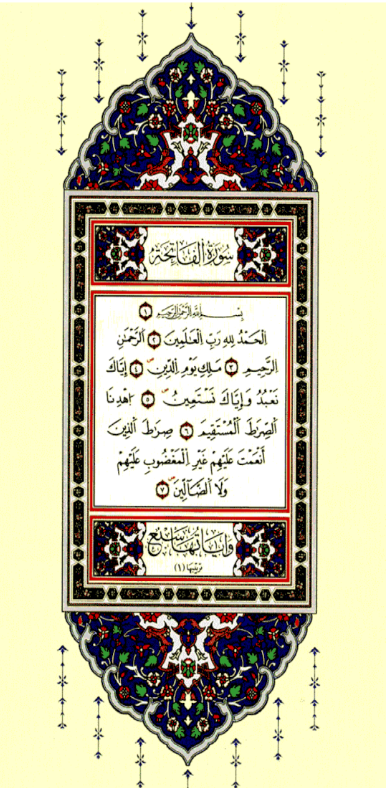 سُورَةُ الْفَاتِحَةِ
بِسْمِ اللَّهِ الرَّحْمَٰنِ الرَّحِيمِ ١
الْحَمْدُ لِلَّهِ رَبِّ الْعَالَمِينَ ٢ الرَّحْمَٰنِ
الرَّحِيمِ ٣ مَالِكِ يَوْمِ الدِّينِ ٤ إِيَّاكَ
نَعْبُدُ وَإِيَّاكَ نَسْتَعِينُ ٥ اهْدِنَا
الصِّرَاطَ الْمُسْتَقِيمَ ٦ صِرَاطَ الَّذِينَ
أَنْعَمْتَ عَلَيْهِمْ غَيْرِ الْمَغْضُوبِ عَلَيْهِمْ
وَلَا الضَّالِّينَ ٧
وَآيَاتُهَا سَبْعٌ
ترتيبها (١)